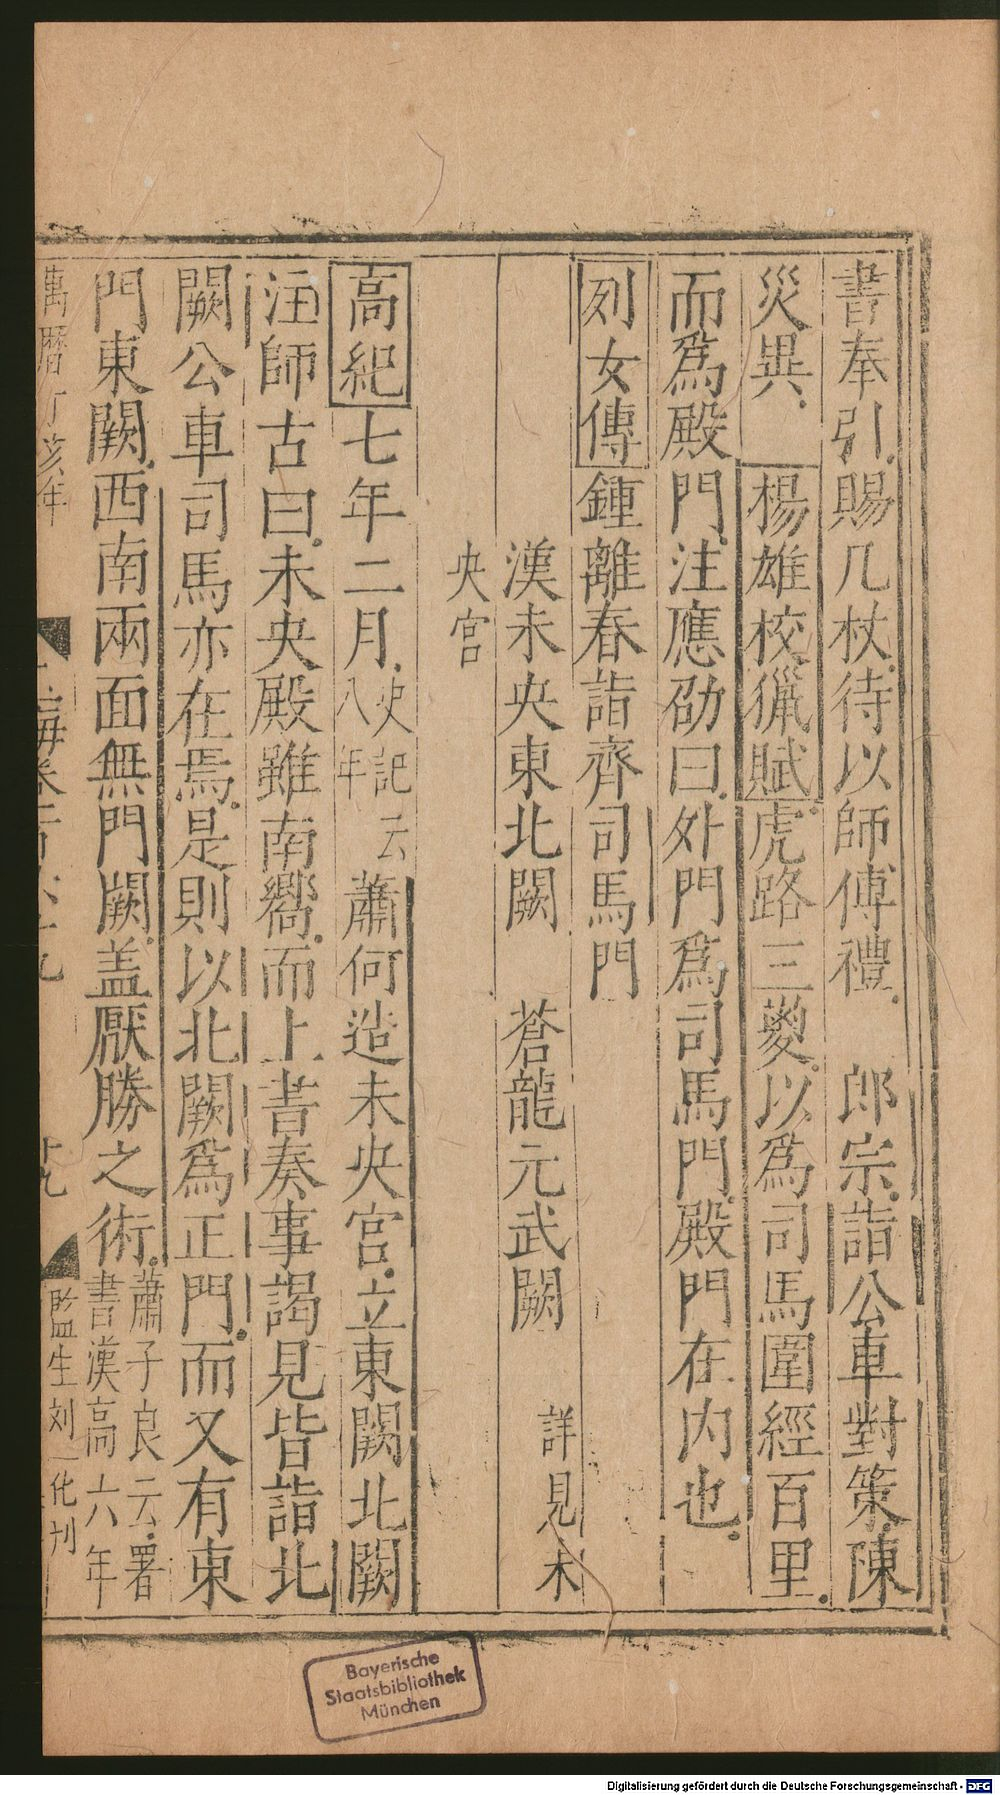 書奉引賜几杖待以師傅禮　郎宗詣公車對策陳
災異　楊雄校獵賦虎路三嵏以爲司馬圍經百里
而爲殿門注應劭曰外門爲司馬門殿門在内也
列女傳鍾離春詣齊司馬門
漢未央東北闕　蒼龍元武闕　詳見未
央宫
高紀七年二月史記云八年蕭何造未央宫立東闕北闕
注師古曰未央殿雖南嚮而上書奏事謁見皆詣北
闕公車司馬亦在焉是則以北闕爲正門而又有東
門東闕西南兩面無門闕盖厭勝之術蕭子良云署書漢高六年
萬曆丁亥年
海卷一百六十九
十九
監生刘一化刊
Bayerische
Staatsbibliothek
München
Digitalisierung gefördert durch die Deutsche Forschungsgemeinschaft - DFG